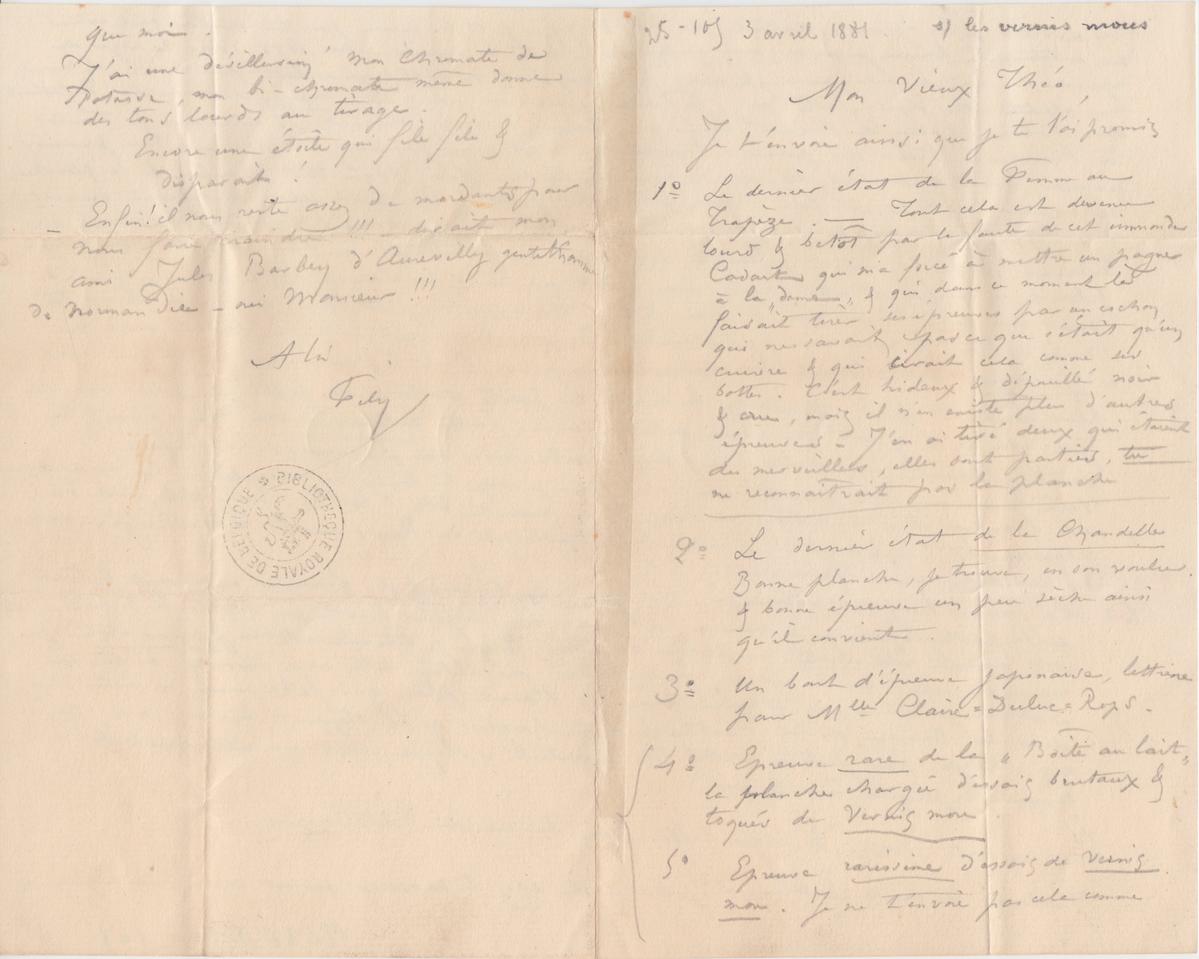 que moi.
J'ai une désillusion! mon Chromate de
Potasse, mon bi-chromate même donne
des tons lourds au tirage.
Encore une étoile qui file file &
disparait!
— Enfin! il nous reste assez de mordants pour
nous faire craindre!!! — disait mon
ami Jules Barbey d'Aurevilly gentilhomme
de Normandie — oui Monsieur!!!
A toi
Fély
BIBLIOTHEQUE ROYALE DE BELGIQUE
25-105 3 avril 1881. s/ les vernis mous
Mon Vieux Théo,
Je t'envoie ainsi que je te l'ai promis
1º Le dernier état de la Femme au
Trapèze. — Tout cela est devenu
lourd & bêtôt par la faute de cet immonde
Cadart qui m'a forcé à mettre un pagne
à la „dame„ & qui dans ce moment là
faisait tirer ses épreuves par un cochon
qui ne savait pas ce que c'était qu'un
cuivre & qui cirait cela comme ses
bottes. C'est hideux & dépouillé noir
& cru, mais il n'en existe plus d'autres
épreuves — J'en ai tiré deux qui étaient
des merveilles, elles sont parties, tu
ne reconnaitrait pas la planche
2º Le dernier état de la Chandelle
Bonne planche, je trouve, en son vouloir
& bonne épreuve un peu sèche ainsi
qu'il convient.
3º Un bout d'épreuve Japonaise, lettrine
pour Mlle Claire=Duluc=Rops.
4º Epreuve rare de la „Boîte au lait„
la planche chargée d'essais brutaux &
toqués de Vernis mou.
5º Epreuve rarissime d'essais de vernis
mou. Je ne t'envoie pas cela comme